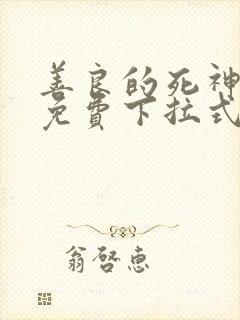 善良的死神
免费下拉式
翁啓惠